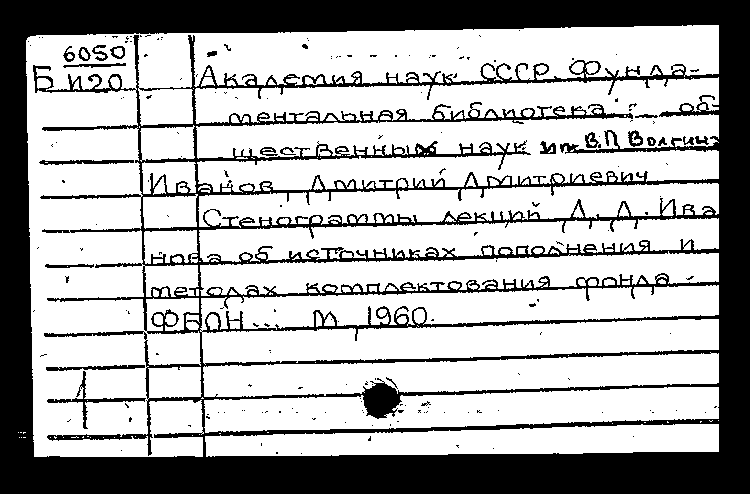 6050
Б И20
Академия наук СССР. Фунда-
ментальная библиотека об-
щественных наук им. В.П. Волгина
Иванов, Дмитрий Дмитриевич
Стенограммы лекций Д. Д. Ива
нова об источниках пополнения и
методах комплектования фонда
ФБОН... М, 1960.
1